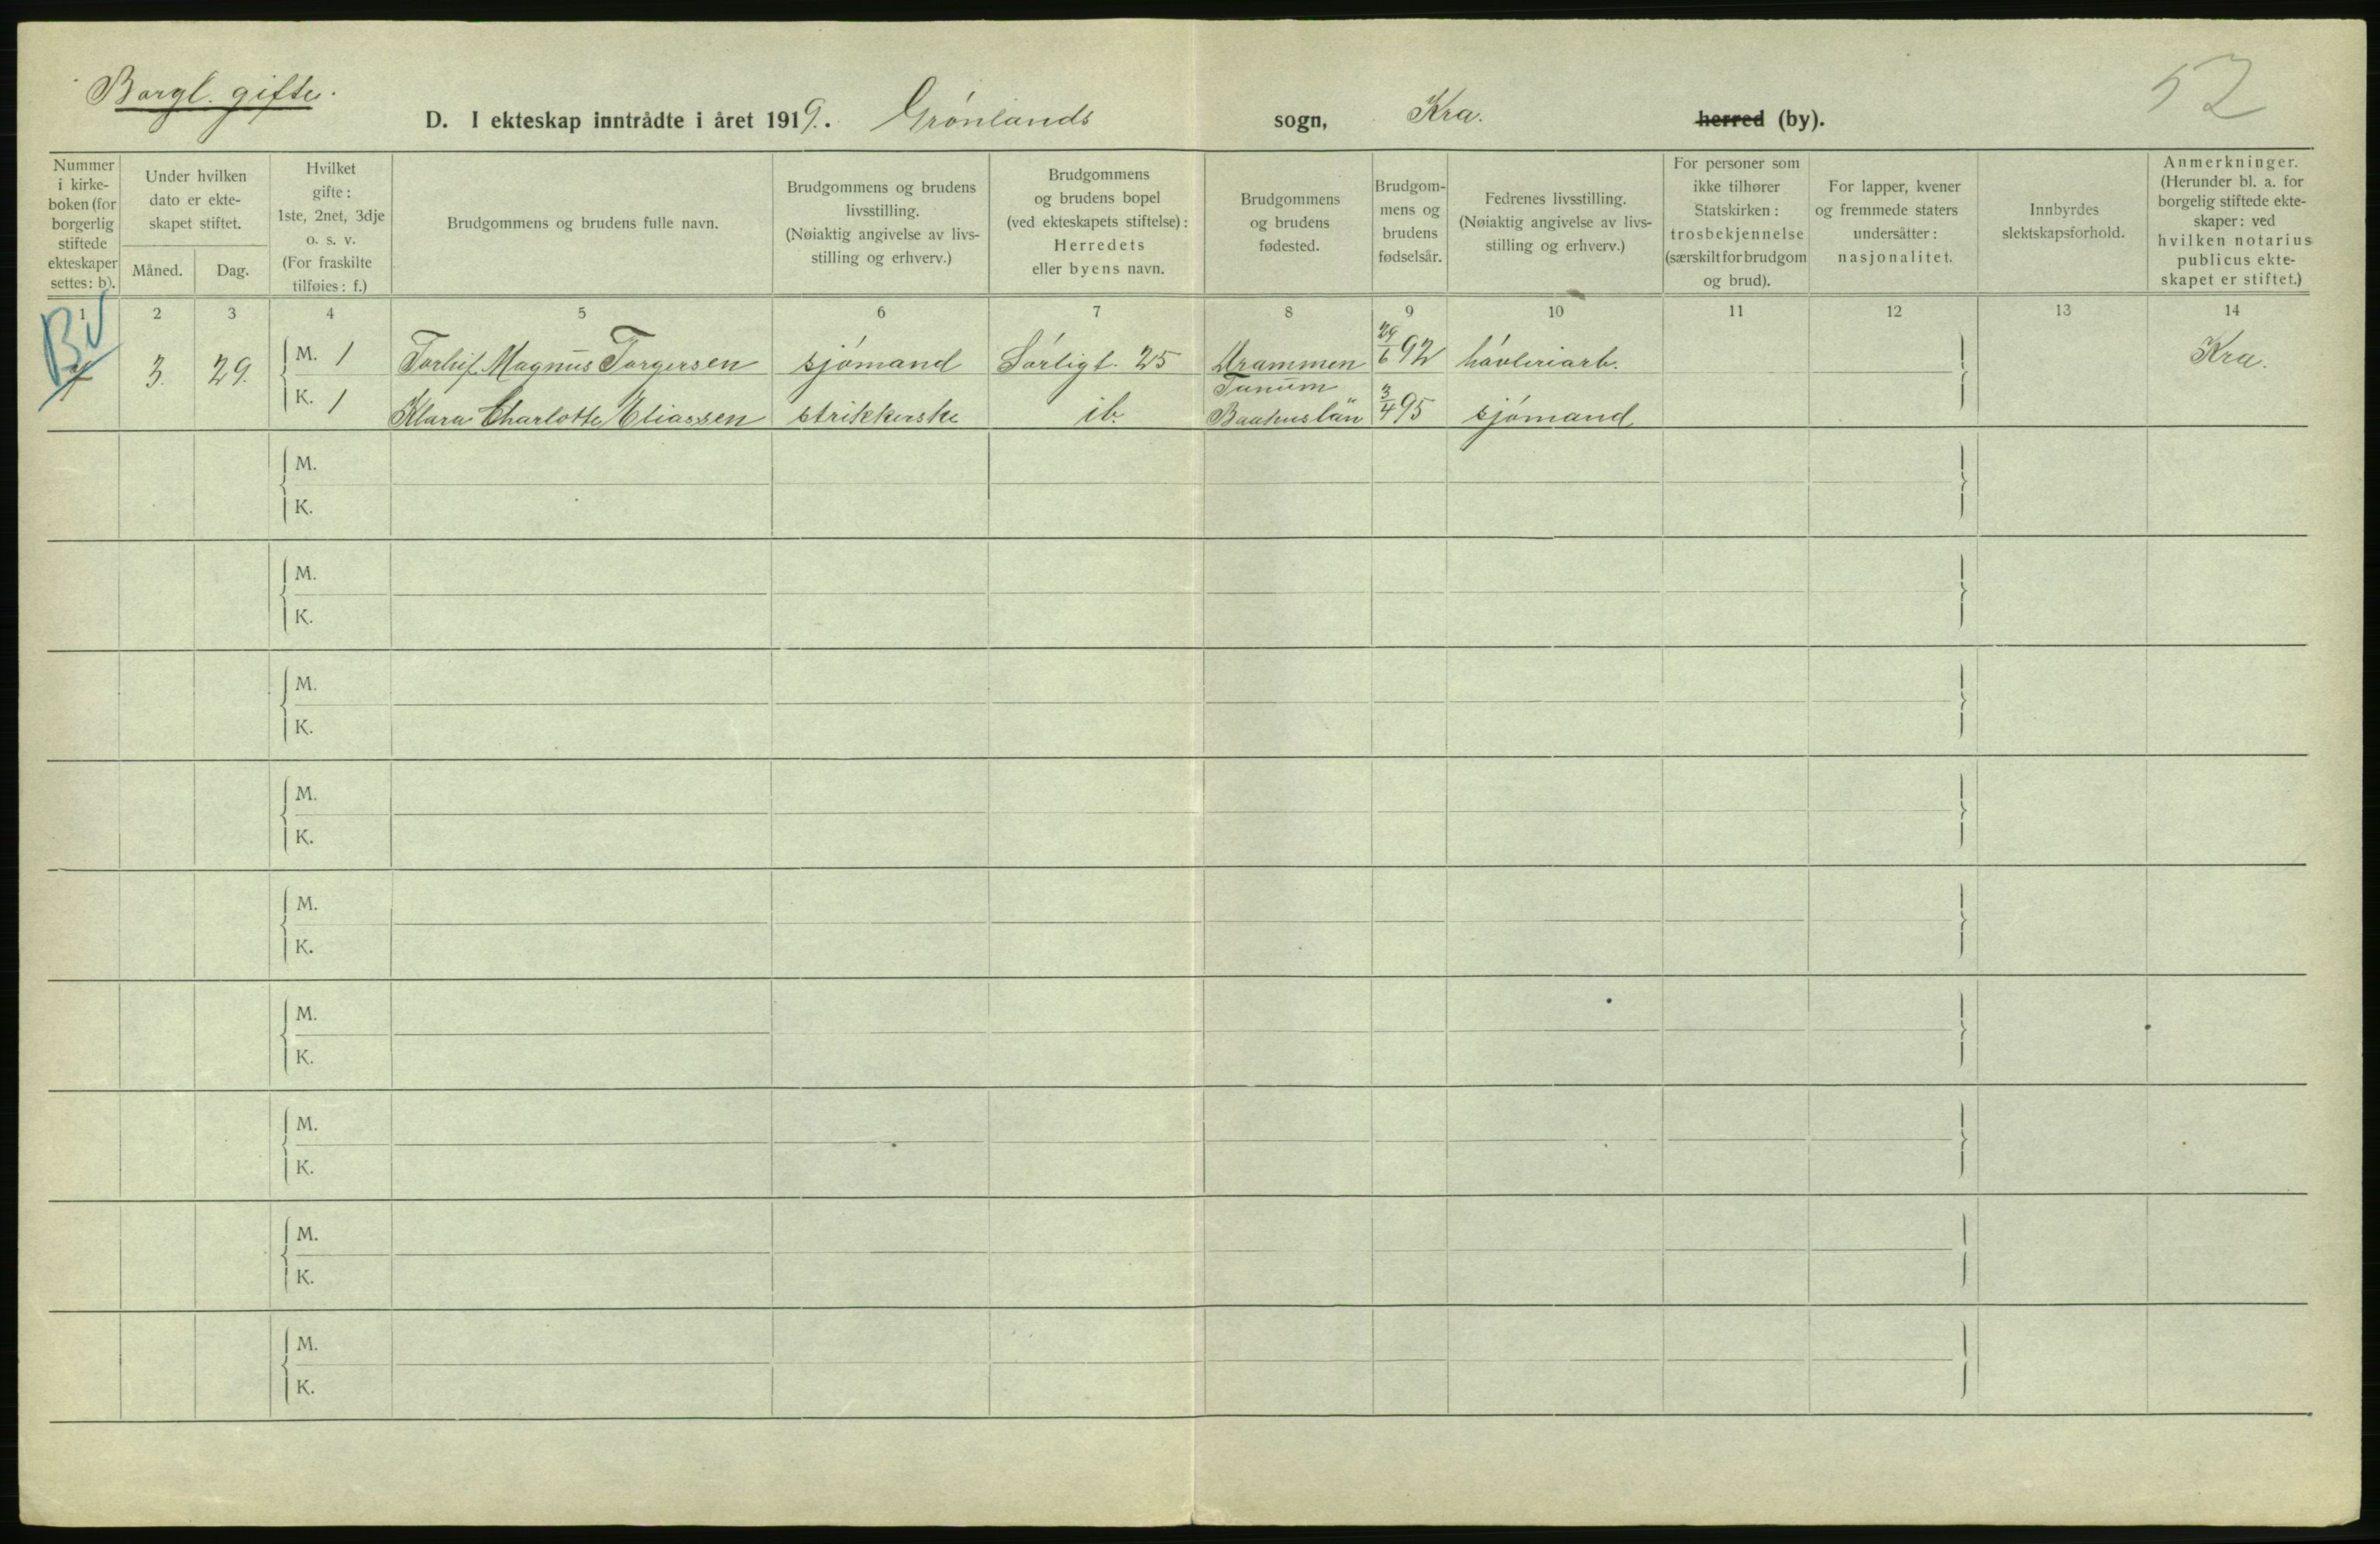 Borgl. gifte.
52
D. I ekteskap inntrådte i året 1919. Grønlands sogn, Kra. herred (by).
Nummer i kirkeboken (for borgerlig stiftede ekteskaper settes: b).
Under hvilken dato er ekteskapet stiftet.
Måned. Dag.
Hvilket gifte: 1ste, 2net, 3dje o. s. v. (For fraskilte tilføies: f.)
Brudgommens og brudens fulle navn.
Brudgommens og brudens livsstilling. (Nøiaktig angivelse av livsstilling og erhverv.)
Brudgommens og brudens bopel (ved ekteskapets stiftelse): Herredets eller byens navn.
Brudgommens og brudens fødested.
Brudgommens og brudens fødselsår.
Fedrenes livsstilling. (Nøiaktig angivelse av livsstilling og erhverv.)
For personer som ikke tilhører Statskirken: trosbekjennelse (særskilt for brudgom og brud).
For lapper, kvener og fremmede staters undersåtter: nasjonalitet.
Innbyrdes slektskapsforhold.
Anmerkninger. (Herunder bl. a. for borgelig stiftede ekteskaper: ved hvilken notarius publicus ekteskapet er stiftet.)
1 2 3 4 5 6 7 8 9 10 11 12 13 14
3. 29. M. 1 Torleif Magnus Torgersen sjømand Sørligt. 25 Drammen 29/6 92 høvleriarb. Kra.
K. 1 Klara Charlotte Eliassen strikkerske ib. Tanum Baahuslän 3/4 95 sjømand
M.
K.
M.
K.
M.
K.
M.
K.
M.
K.
M.
K.
M.
K.
M.
K.
M.
K.